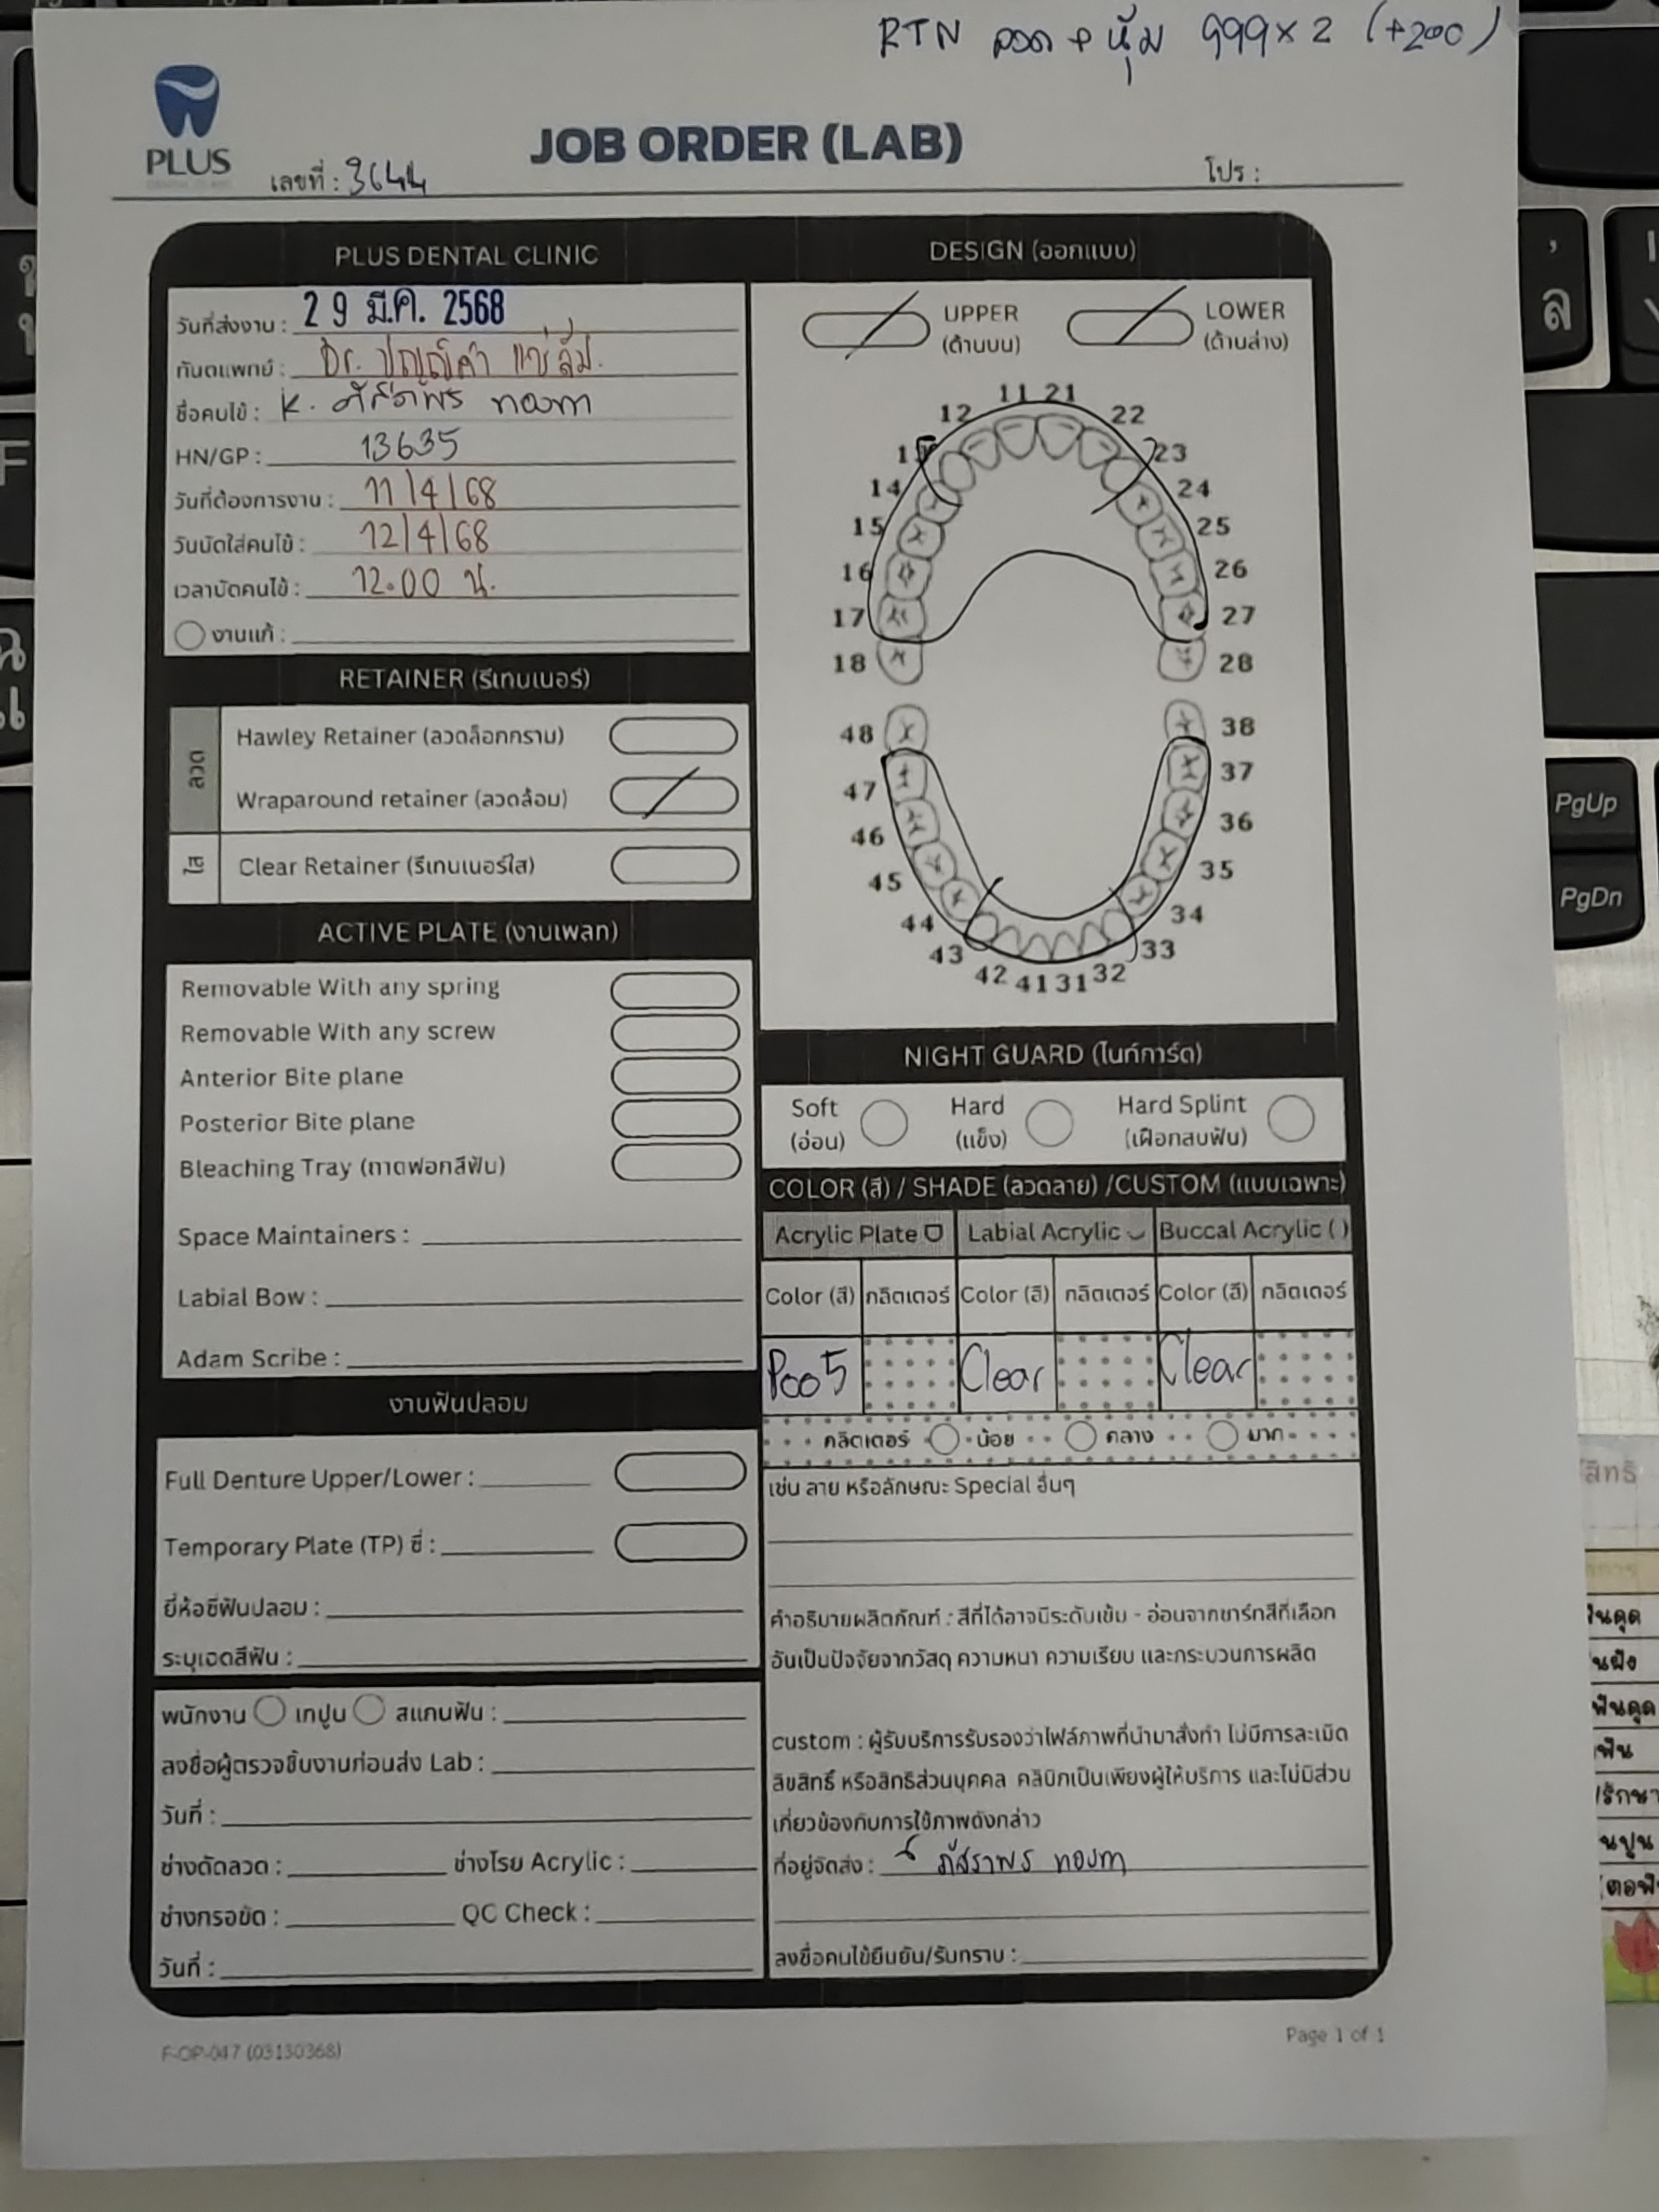 RTN ลวด + หุ้ม 999x2 (+200)
PLUS
JOB ORDER (LAB)
เลขที่ : 3644
โปร :
PLUS DENTAL CLINIC
วันที่ส่งงาน : 29 มี.ค. 2568
ทันตแพทย์ : Dr.
ชื่อคนไข้ : K. ภัสราพร ทองทา
HN/GP : 13635
วันที่ต้องการงาน : 11/4/68
วันนัดใส่คนไข้ : 12/4/68
เวลานัดคนไข้ : 12.00 น.
งานแก้ :
RETAINER (รีเทนเนอร์)
ลวด
Hawley Retainer (ลวดล็อกกราม)
Wraparound retainer (ลวดล้อม)
ใส
Clear Retainer (รีเทนเนอร์ใส)
ACTIVE PLATE (งานเพลท)
Removable With any spring
Removable With any screw
Anterior Bite plane
Posterior Bite plane
Bleaching Tray (ถาดฟอกสีฟัน)
Space Maintainers :
Labial Bow :
Adam Scribe :
งานฟันปลอม
Full Denture Upper/Lower :
Temporary Plate (TP) ซี่ :
ยี่ห้อซี่ฟันปลอม :
ระบุเฉดสีฟัน :
พนักงาน เทปูน สแกนฟัน :
ลงชื่อผู้ตรวจชิ้นงานก่อนส่ง Lab :
วันที่ :
ช่างดัดลวด : ช่างโรย Acrylic :
ช่างกรอขัด : QC Check :
วันที่ :
DESIGN (ออกแบบ)
UPPER (ด้านบน) LOWER (ด้านล่าง)
11 21
12 22
13 23
14 24
15 25
16 26
17 27
18 28
48 38
47 37
46 36
45 35
44 34
43 33
42 41 31 32
NIGHT GUARD (ไนท์การ์ด)
Soft (อ่อน) Hard (แข็ง) Hard Splint (เฝือกสบฟัน)
COLOR (สี) / SHADE (ลวดลาย) /CUSTOM (แบบเฉพาะ)
Acrylic Plate Labial Acrylic Buccal Acrylic ( )
Color (สี) กลิตเตอร์ Color (สี) กลิตเตอร์ Color (สี) กลิตเตอร์
P005 Clear Clear
กลิตเตอร์ น้อย กลาง มาก
เช่น ลาย หรือลักษณะ Special อื่นๆ
คำอธิบายผลิตภัณฑ์ : สีที่ได้อาจมีระดับเข้ม - อ่อนจากชาร์ทสีที่เลือก
อันเป็นปัจจัยจากวัสดุ ความหนา ความเรียบ และกระบวนการผลิต
custom : ผู้รับบริการรับรองว่าไฟล์ภาพที่นำมาสั่งทำ ไม่มีการละเมิด
ลิขสิทธิ์ หรือสิทธิส่วนบุคคล คลินิกเป็นเพียงผู้ให้บริการ และไม่มีส่วน
เกี่ยวข้องกับการใช้ภาพดังกล่าว
ที่อยู่จัดส่ง : ภัสราพร ทองทา
ลงชื่อคนไข้ยืนยัน/รับทราบ :
F-OP-047 (03130368)
Page 1 of 1
PgUp
PgDn
F
ล